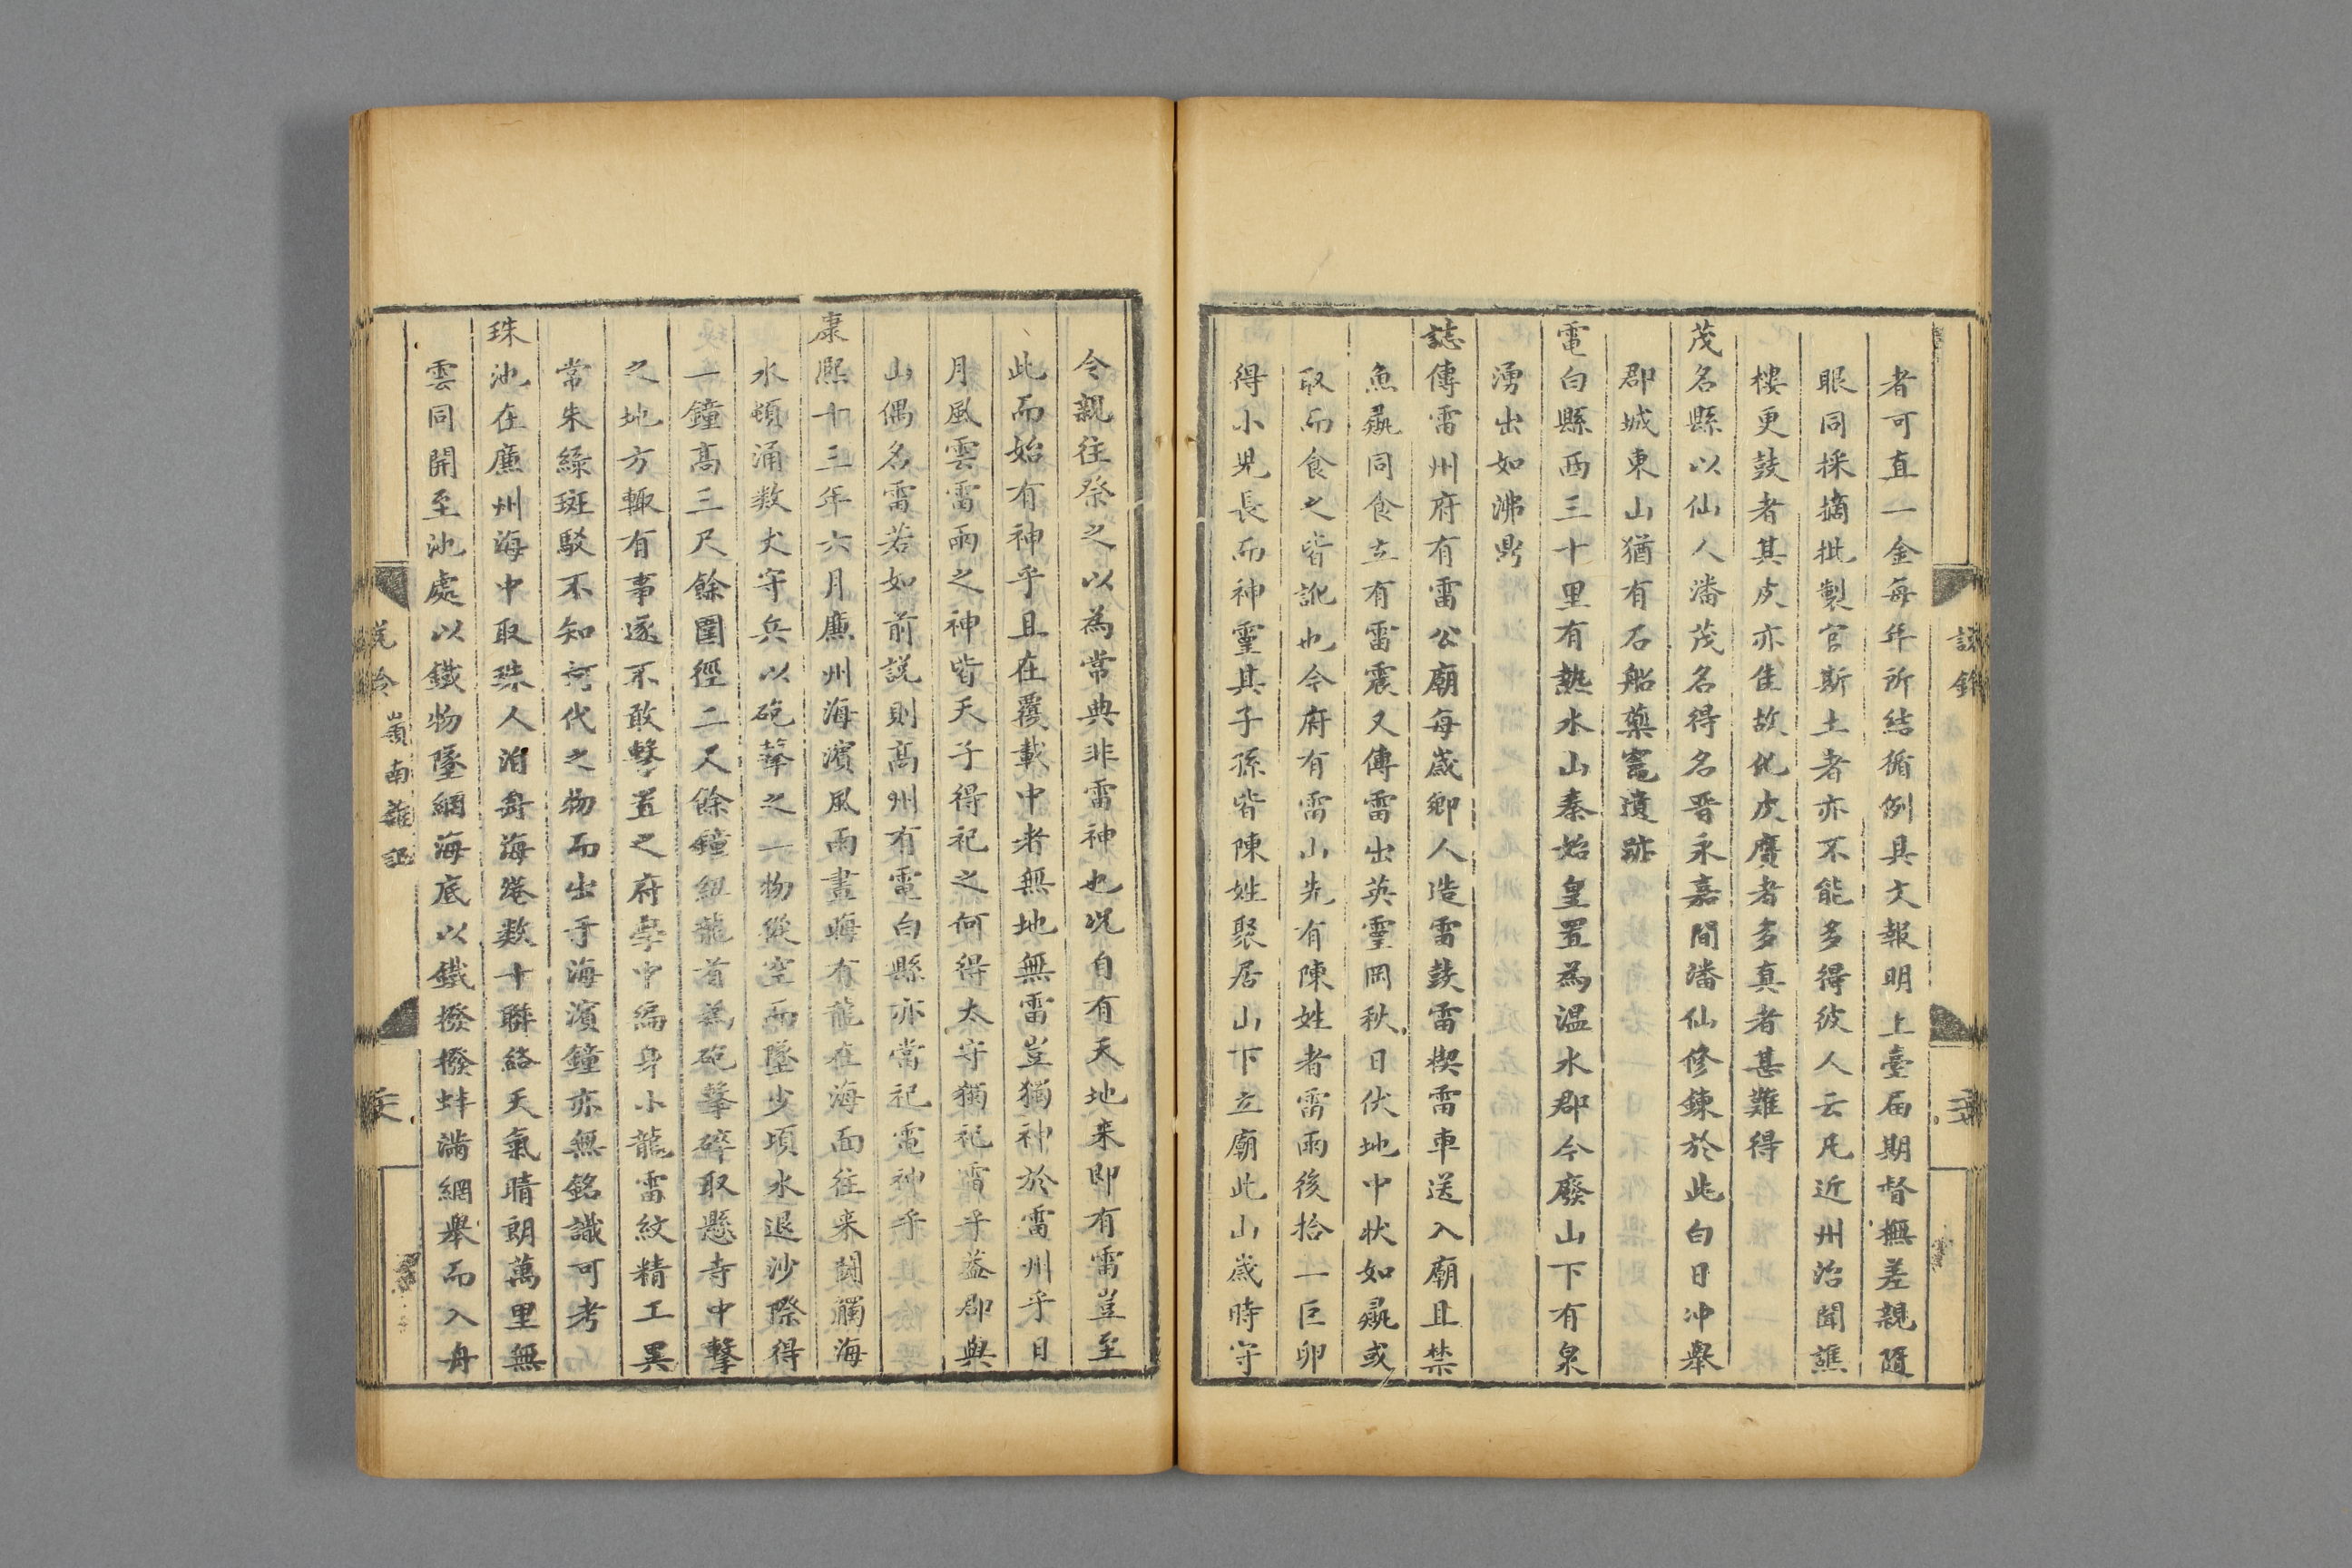 者可直一金每年所結循例具文報明上臺届期督撫差親隨
眼同採摘批製官斯土者亦不能多得彼人云凡近州治聞譙
樓更鼓者其皮亦佳故化皮贋者多真者甚難得
茂名縣以仙人潘茂名得名晋永嘉間潘仙修鍊於此白日冲舉
郡城東山猶有石船藥竈遺跡
電白縣西三十里有熱水山秦始皇置為温水郡今廢山下有泉
湧出如沸鼎
誌傳雷州府有雷公廟每歲鄉人造雷鼓雷楔雷車送入廟且禁
魚彘同食立有雷震又傳雷出英靈岡秋日伏地中状如彘或
取而食之皆訛也今府有雷山先有陳姓者雷雨後拾一巨卵
得小兒長而神靈其子孫皆陳姓聚居山下立廟此山歲時守
令親往祭之以為常典非雷神也况自有天地来即有雷豈至
此而始有神乎且在覆載中者無地無雷豈獨神於雷州乎日
月風雲雷雨之神皆天子得祀之何得太守獨祀雷乎盖郡與
山偶名雷若如前説則高州有電白縣亦當祀電神乎
康熙十三年六月廉州海濱風雨晝晦有龍在海面往来鬭觸海
水頓涌数丈守兵以砲擊之一物從空而墜少頃水退沙際得
一鐘高三尺餘圍徑二尺餘鐘紐龍首為砲擊碎取懸寺中擊
之地方輙有事遂不敢擊置之府學中編身小龍雷紋精工異
常朱緑斑駁不知何代之物而出于海濱鐘亦無銘識可考
珠池在廉州海中取珠人泊舟海港数十聯絡天氣晴朗萬里無
雲同開至池處以鐵物墜網海底以鐵撥撥蚌满網舉而入舟
説鈴
嶺南雜記